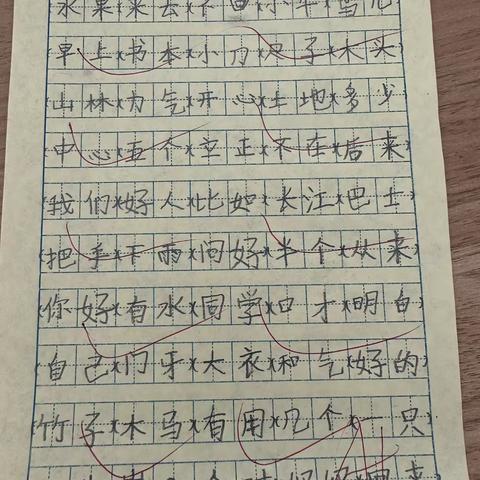 水果(来去(不
早上(书本(小刀(尺子(木头)
山林(力气(开心(土地(多少
(中心(五个(立正(不在(后来)
(我们(好人(比如(长江(巴士)
(把手(下雨(问好(半个(从来)
(你好(有水(同学(口才(明白)
(自己(门牙(大衣(和气(好的)
(竹子(木马(有用(几个(一只